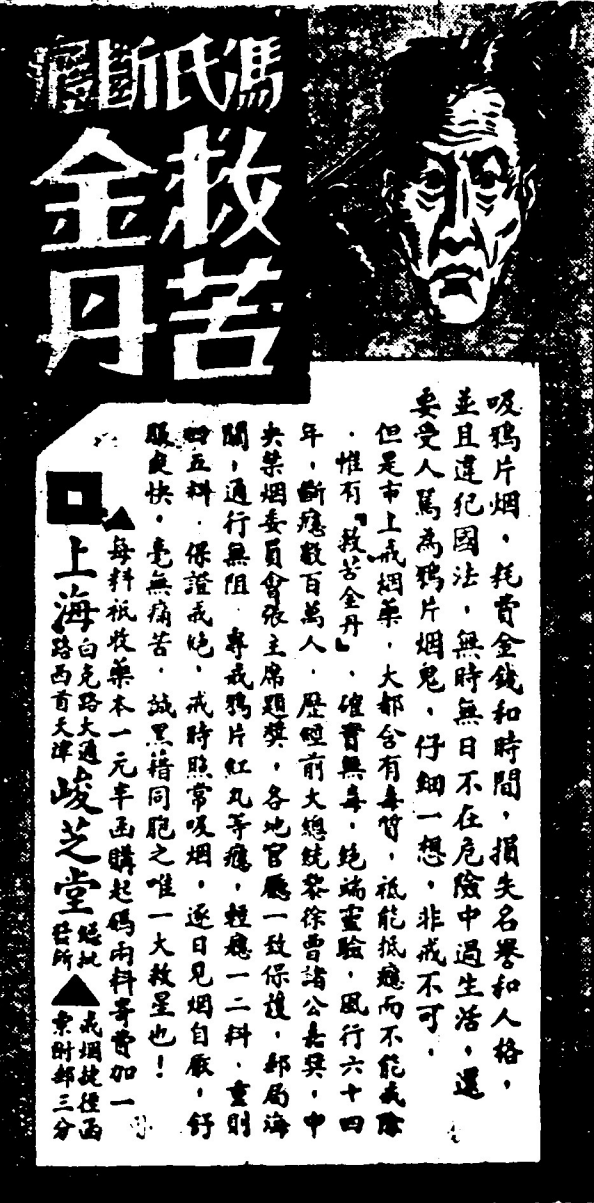 馮氏斷癮
救苦
金丹
吸鴉片烟，耗費金錢和時間，損失名譽和人格，
並且違犯國法，無時無日不在危險中過生活，還
要受人罵為鴉片烟鬼，仔細一想，非戒不可，
但是市上戒烟藥，大都含有毒質，祗能抵癮而不能戒除
．惟有『救苦金丹』，確實無毒，絕端靈驗，風行六十四
年，斷癮數百萬人，歷經前大總統黎徐曹諸公嘉獎，中
央禁烟委員會張主席題獎，各地官廳一致保護，郵局海
關，通行無阻．專戒鴉片紅丸等癮，輕癮一二料．重則
四五料．保證戒絕，戒時照常吸烟，逐日見烟自厭，舒
服爽快，毫無痛苦．誠黑籍同胞之唯一大救星也！
▲每料祗收藥本一元半函購起碼兩料寄費加一
上海白克路大通
路西首天津
峻芝堂總批
發所
▲戒烟捷徑函
索附郵三分